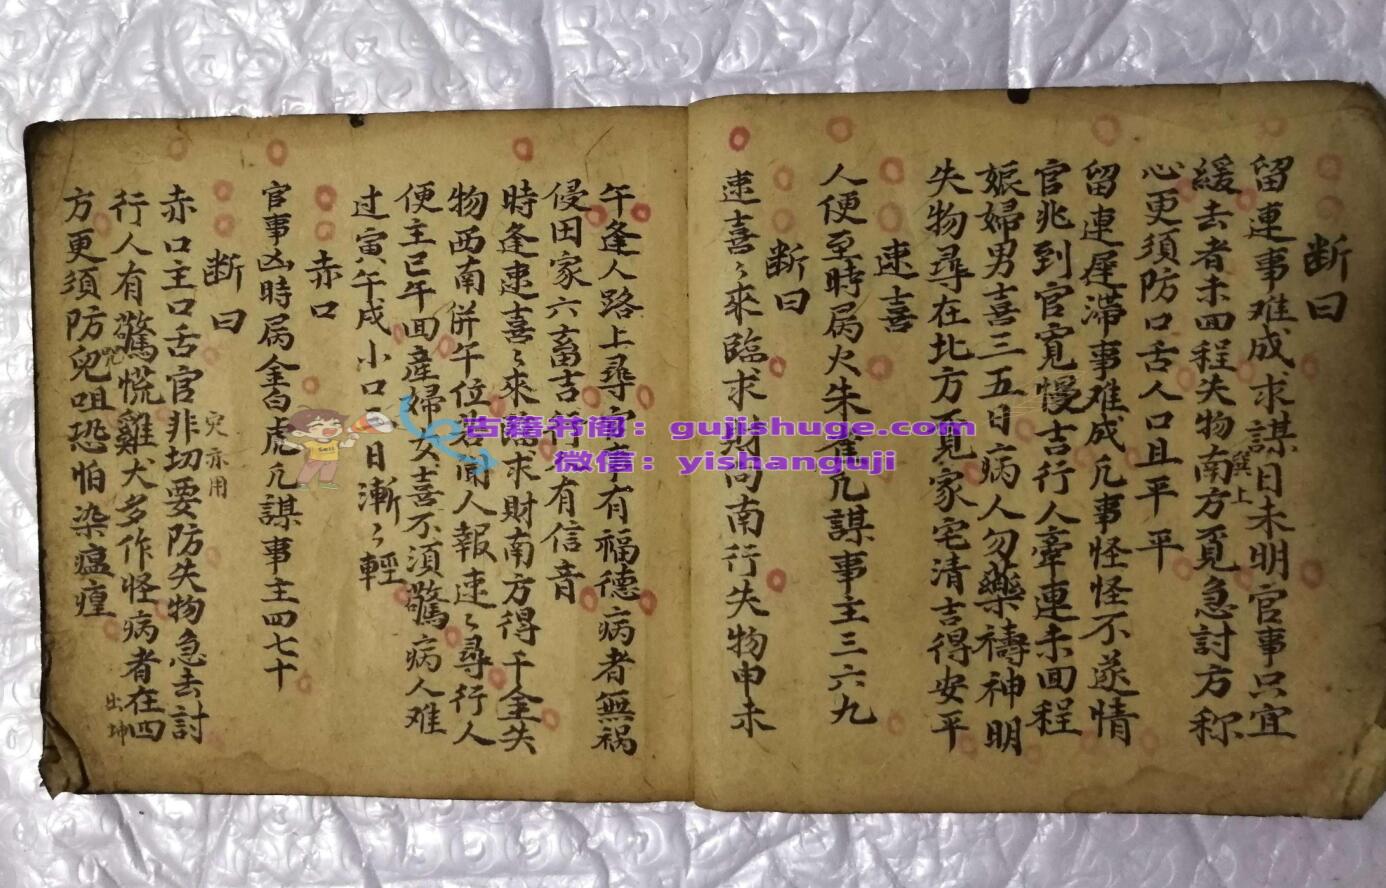 断曰
留連事难成求謀日未明官事只宜
緩去者未回程失物南方覓急討方称
心更須防口舌人口且平平
留連遲滞事难成凢事怪怪不遂情
官兆到官寛慢吉行人牽連未回程
娠婦男喜三五日病人勿藥禱神明
失物尋在北方覓家宅清吉得安平
速喜
人便至時属火朱雀凢謀事主三六九
断曰
速喜〻來臨求財向南行失物申未
午逢人路上尋官事有福德病者無祸
侵田家六畜吉行人有信音
時逢速喜〻來臨求財南方得千金失
物西南併午位若聞人報速〻尋行人
便主巳午回産婦女喜不須驚病人难
过寅午戌小口 日漸〻輕
赤口
官事凶時属金白虎凢謀事主四七十
断曰
赤口主口舌官非切要防失物急去討
行人有驚慌雞犬多作怪病者在四
方更須防兒咀恐怕染瘟瘴
巽上
亦用
出坤
古籍书阁：gujishuge.com
微信：yishanguji